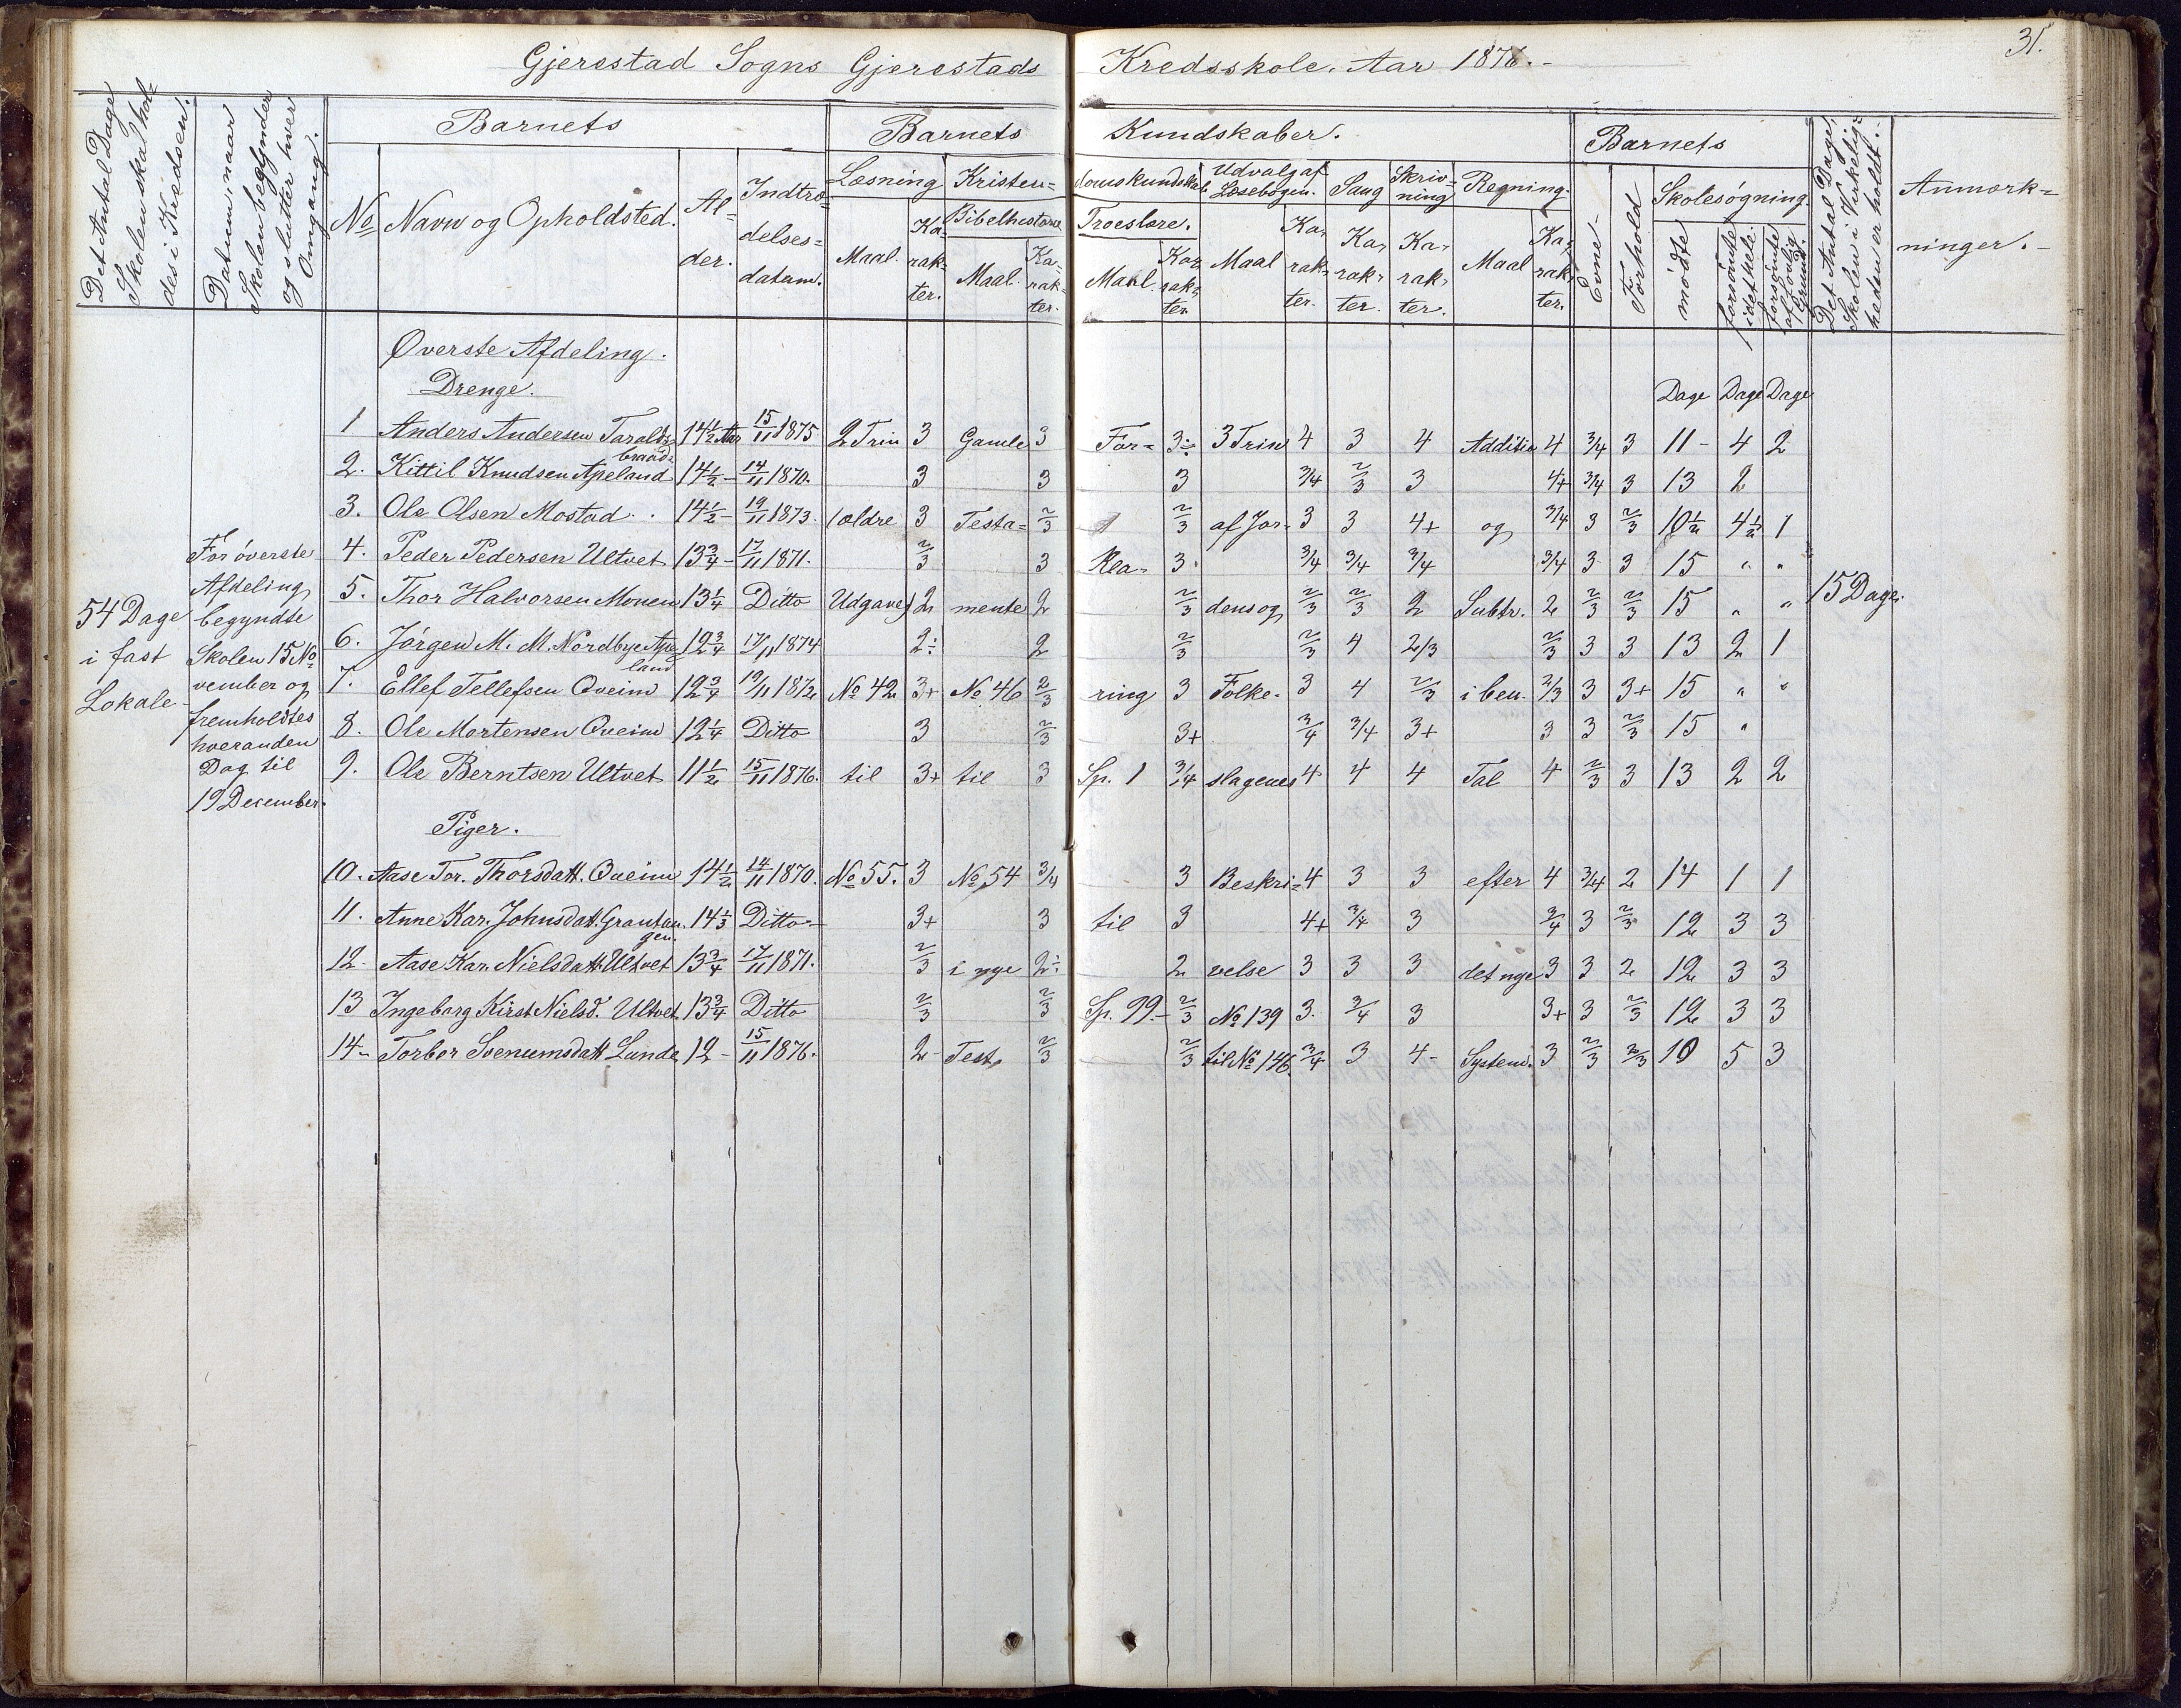 31.
Gjerestad Sogns Gjerestads Kredsskole. Aar 1876.-
Det Antal Dage Skolen skal hol= des i Kredsen.
Datum, naar Skolen begynder og slutter hver Omgang.
Barnets
Barnets Kundskaber.
Barnets
Det Antal Dage, Skolen i Virkelig= heden er holdt.-
Anmærk= ninger.-
No Navn og Opholdsted. Al= der. Indtræ= delses= datum.
Læsning Kristen= domskundskab Udvalg af Læsebogen. Sang Skriv= ning Regning.
Bibelhistorie Troeslære.
Maal. Ka= rak= ter. Maal. Ka= rak= ter. Maal. Ka= rak= ter. Maal Ka= rak= ter. Ka= rak= ter. Ka= rak= ter. Maal Ka= rak= ter.
Evne- Forhold Skolesøgning.
mødte forsømte idethele. forsømte af lovlig Grund.
Øverste Afdeling.
Drenge.
Dage Dage Dage
1 Anders Andersen Taralds= 14½ Aar 15/11 1875 2 Trin 3 Gamle 3 For= 3÷ 3 Trin 4 3 4 Addition 4 3/4 3 11 - 4 2
braad=
2. Kittil Knudsen Apeland 14½ - 14/11 1870. 3 3 3 3/4 2/3 3 4+ 3/4 3 13 2
3. Ole Olsen Mostad. . 14½ - 19/11 1873. (ældre 3 Testa= 2/3 2/3 af Jor= 3 3 4+ og 3/4 3 2/3 10½ 4½ 1
4. Peder Pedersen Ultvet 13¾ - 17/11 1871. 2/3 3 Kla= 3. 3/4 3/4 3/4 3/4 3 3 15 " "
5. Thor Halvorsen Monen 13¼ Ditto Udgave) 2 mente 2 2/3 dens og 2/3 2/3 2 Subtr. 2 2/3 2/3 15 " "
6. Jørgen M. M. Nordbye Ape= 12¾ 17/11 1874 2÷ 2 2/3 2/3 4 2/3 2/3 3 3 13 2 1
land
7. Ellef Tellefsen Qveim 12¾ 19/11 1872 No 42 3+ No 46 2/3 ring 3 Folke- 3 4 2/3 i ben. 2/3 3 3+ 15 " "
8. Ole Mortensen Qveim 12¼ Ditto 3 2/3 3+ 3/4 3/4 3+ 3 3 2/3 15 "
9. Ole Berntsen Ultvet 11½ 15/11 1876. til 3+ til 3 Sp. 1 3/4 slagenes 4 4 4 Tal 4 2/3 3 13 2 2
54 Dage
i fast
Lokale-
For øverste
Afdeling
begyndte
Skolen 15 No=
vember og
fremholdtes
hveranden
Dag til
19 December.
15 Dage.
Piger.
10. Aase Tor. Thorsdatt. Qveim 14½ 14/11 1870. No 55. 3 No 54 3/4 3 Beskri= 4 3 3 efter 4 3/4 2 14 1 1
11. Anne Kar. Johnsdatt. 14⅓ Ditto- 3+ 3 til 3 4+ 3/4 3 3/4 3 2/3 12 3 3
gen.
12- Aase Kar. Nielsdatt. Ultvet 13¾ 17/11 1871. 2/3 i nye 2÷ 2 velse 3 3 3 det nye 3 3 2 12 3 3
13 Ingeborg Kirst. Nielsd. Ultvet 13¾ Ditto 2/3 2/3 Sp. 99.- 2/3 No 139 3. 3/4 3 3+ 3 2/3 12 3 3
14- Torbor Svenumsdatt Lunde 12 - 15/11 1876. 2- Test. 2/3 2/3 til No 146. 3/4 3 4- System. 3 2/3 2/3 10 5 3